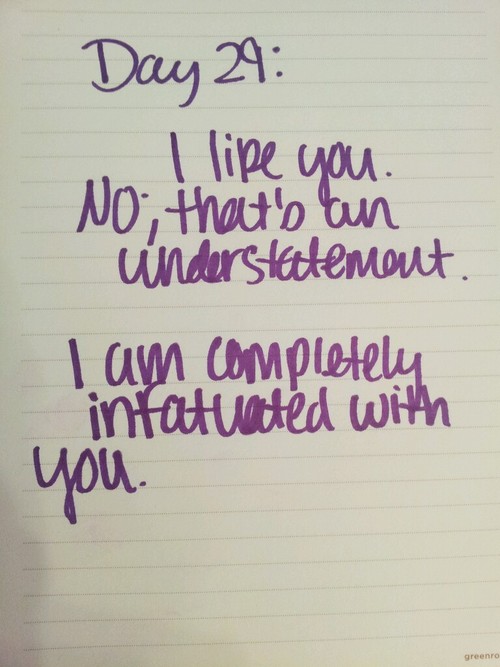 Day 29:
I like you.
NO; that's an
understatement.
I am completely
infatuated with
you.
greenro